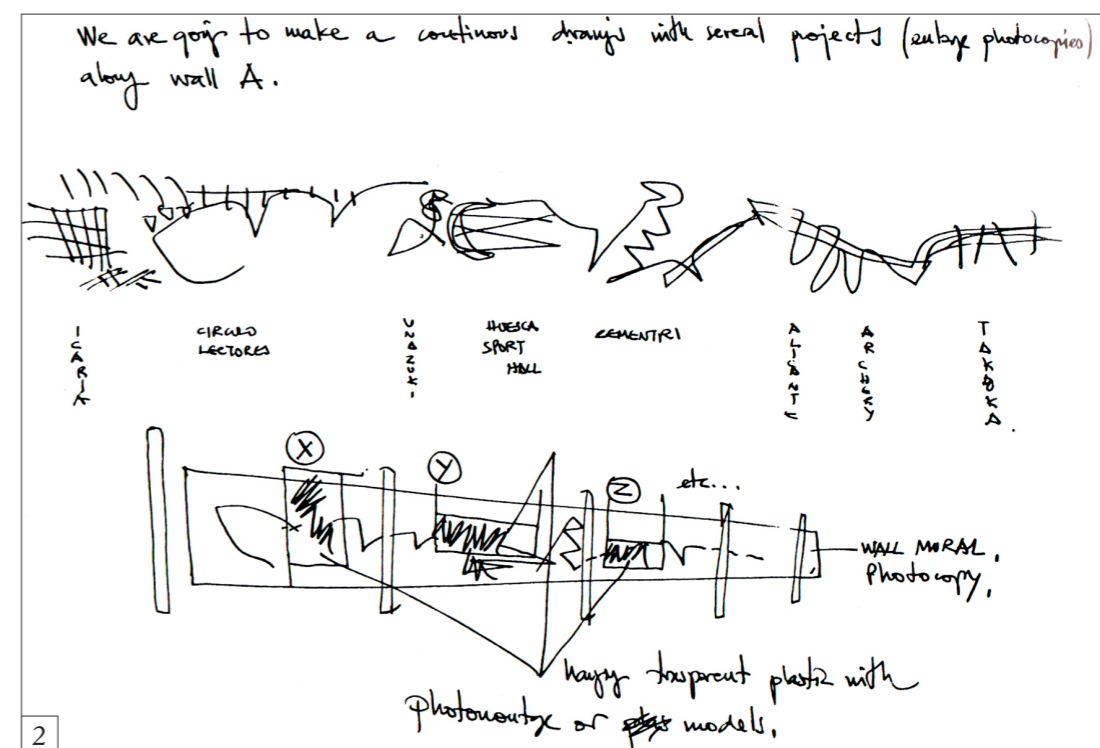 We are going to make a continous drawings with several projects (enlarge photocopies)
along wall A.
ICARIA
CIRCULO
LECTORES
UNAZUKI
HUESCA
SPORT
HALL
CEMENTRI
ALICANTE
ARCHERY
TAKAOKA.
X
Y
Z
etc...
WALL MORAL.
Photocopy.
hangig trasparent plastic with
photomontge or models.
2